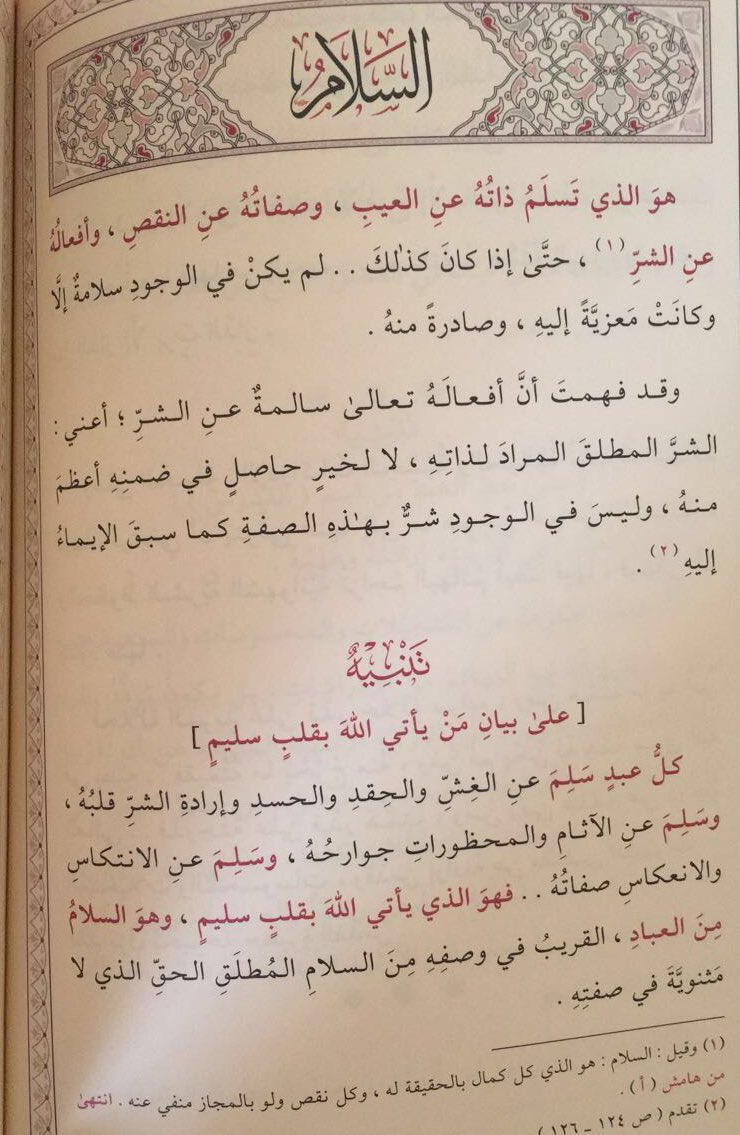 السَّلَامُ
هوَ الذي تَسلَمُ ذاتُهُ عنِ العيبِ ، وصفاتُهُ عنِ النقصِ ، وأفعالُهُ
عنِ الشرِّ (١) ، حتَّىٰ إذا كانَ كذٰلكَ . . لم يكنْ في الوجودِ سلامةٌ إلَّا
وكانَتْ مَعزيَّةً إليهِ ، وصادرةً منهُ .
وقد فهمتَ أنَّ أفعالَهُ تعالىٰ سالمةٌ عنِ الشرِّ ؛ أعني :
الشرَّ المطلقَ المرادَ لذاتِهِ ، لا لخيرٍ حاصلٍ في ضمنِهِ أعظمَ
منهُ ، وليسَ في الوجودِ شرٌّ بهٰذهِ الصفةِ كما سبقَ الإيماءُ
إليهِ (٢) .
تَنْبِيْهٌ
[ علىٰ بيانِ مَنْ يأتي اللهَ بقلبٍ سليمٍ ]
كلُّ عبدٍ سَلِمَ عنِ الغِشِّ والحِقدِ والحسدِ وإرادةِ الشرِّ قلبُهُ ،
وسَلِمَ عنِ الآثامِ والمحظوراتِ جوارحُهُ ، وسَلِمَ عنِ الانتكاسِ
والانعكاسِ صفاتُهُ . . فهوَ الذي يأتي اللهَ بقلبٍ سليمٍ ، وهوَ السلامُ
مِنَ العبادِ ، القريبُ في وصفِهِ مِنَ السلامِ المُطلَقِ الحقِّ الذي لا
مَثنويَّةَ في صفتِهِ .
(١) وقيل : السلام : هو الذي كل كمال بالحقيقة له ، وكل نقص ولو بالمجاز منفي عنه . انتهىٰ
من هامش ( أ ) .
(٢) تقدم ( ص ١٢٤ - ١٢٦ )